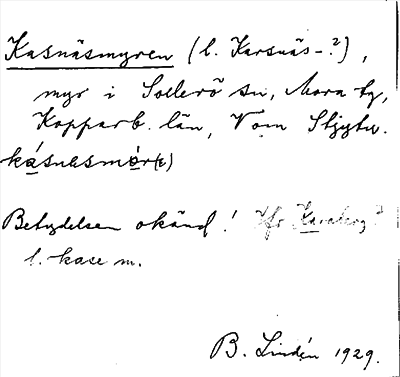 Kasnäsmyren (l. Karsnäs-?),
myr i Sollerö sn, Mora tg,
Kopparb. län, V om
kásnesmór(e)
Betydelsen okänd! Jfr
l. kase m.
B. Lindén 1929.